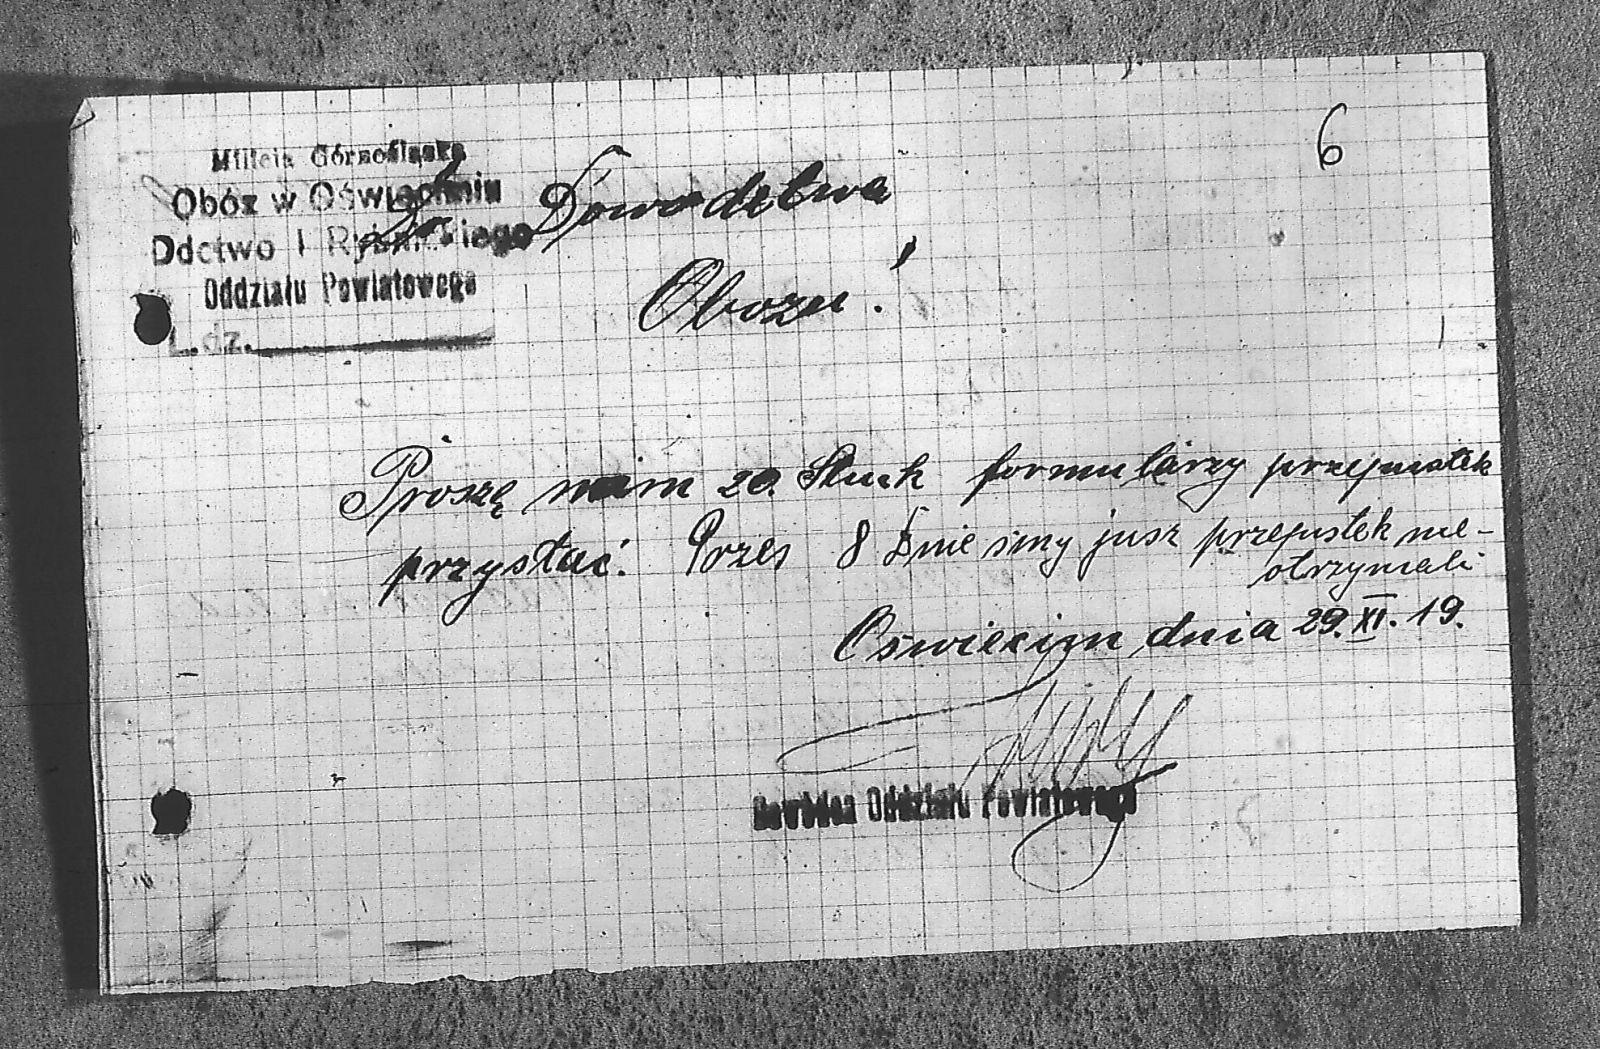 6
Milicja Górnośląska
Obóz w Oświęcimiu
Ddctwo I Rybnickiego
Oddziału Powiatowego
L. dz.
Do Dowodctwa
Obozu!
Proszę nam 20. Stuck formularzy przepustek
przysłać. Przes 8 Dnie smy jusz przepustek nie-
otrzymali
Oswiecim dnia 29.XI.19.
Dowódca Oddziału Powiatowego